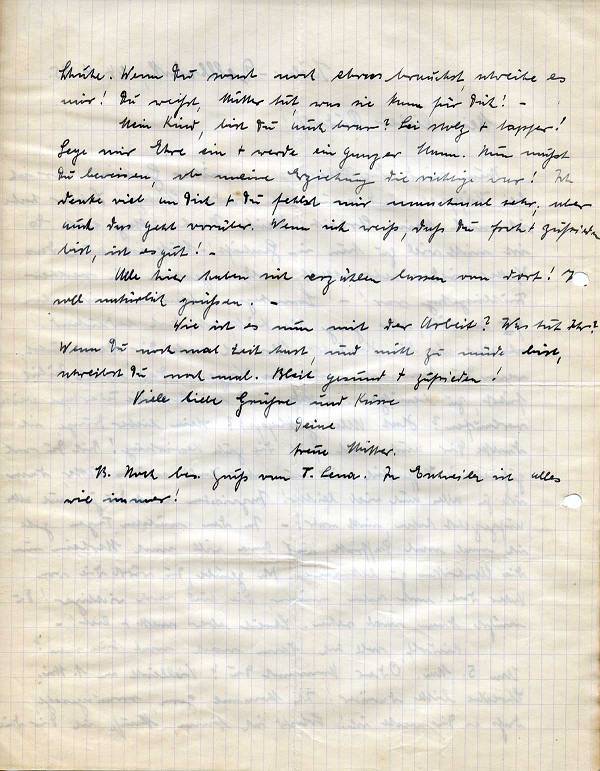 Schuhe. Wenn Du sonst noch etwas brauchst, schreibe es
mir! Du weißt, Mutter tut, was sie kann für Dich! -
Mein Kind, bist Du auch brav? Sei stolz + tapfer!
Lege mir Ehre ein + werde ein ganzer Mann. Nun mußt
Du beweisen, ob meine Erziehung die richtige war! Ich
denke viel an Dich + Du fehlst mir manchmal sehr, aber
auch das geht vorüber. Wenn ich weiß, daß Du froh + zufrieden
bist, ist es gut! -
Alle hier haben sich erzählen lassen von dort! I
soll natürlich grüßen. -
Wie ist es nun mit der Arbeit? Was tut Ihr?
Wenn Du noch mal Zeit hast, und nicht zu müde bist,
schreibst Du noch mal. Bleib gesund + zufrieden!
Viele liebe Grüße und Küsse
Deine
treue Mutter.
Noch bes. Gruß von T. Lena. In ist alles
wie immer!